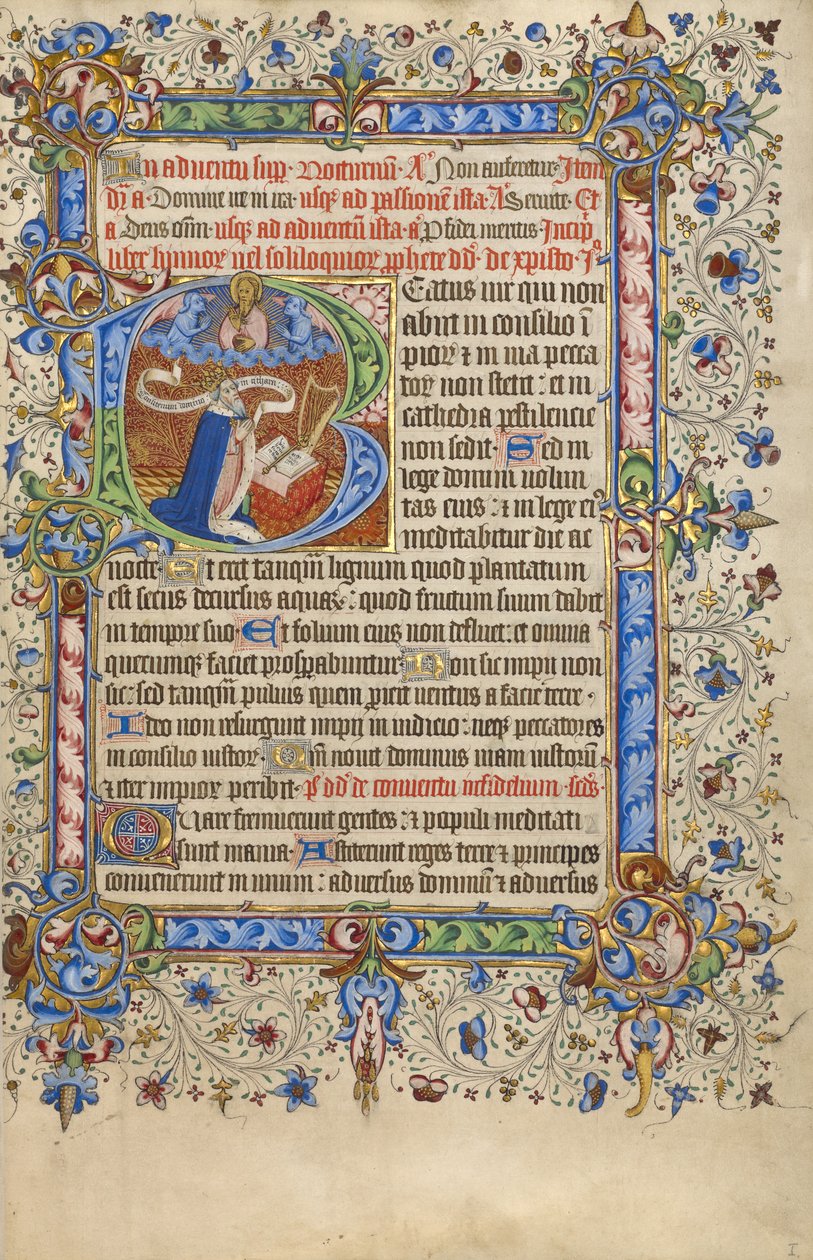 In adventu sup. Nocturnũ. A. Non auferetur. Item
dña. Domine ne in ira. usqȝ ad passionẽ ista. A. Servite. Et
a Deus oīm. usqȝ ad adventũ ista. a. ꝓ fidei meritis. Incip
liber hymnoꝝ vel soliloquioꝝ ꝓphete dd. de xpisto. I
Beatus vir qui non
abiit in consilio ĩ
pioꝝ ⁊ in via pecca
toꝝ non stetit : et in
cathedra pestilencie
non sedit Sed in
lege domini volun
tas eius : ⁊ in lege ei
meditabitur die ac
nocte Et erit tanqm̃ lignum quod plantatum
est secus decursus aquaꝝ : quod fructum suum dabit
in tempore suo Et folium eius non defluet : et omnia
quecumqȝ faciet prosꝑabuntur Non sic impii non
sic : sed tanqm̃ pulvis quem ꝓicit ventus a facie terre .
Ideo non resurgunt impii in iudicio : neqȝ peccatores
in consilio iustoꝝ Qm̃ novit dominus viam iustorũ
⁊ iter impioꝝ peribit . p̃ dd̃ de conventu infidelium . scds̃ .
Quare fremuerunt gentes : ⁊ populi meditati
sunt inania . Astiterunt reges terre ⁊ principes
convenerunt in unum : adversus dominũ ⁊ adversus
I